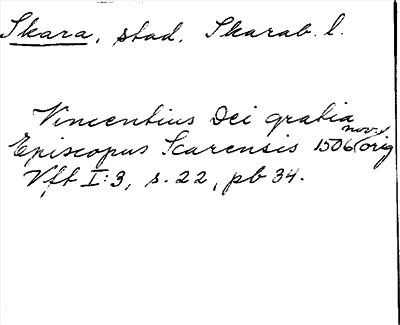 Skara, stad. Skarab. l.
Vincentius Dei gratia
Episcopus Scarensis 1506 (nov.) orig
Vft I:3, s. 22, pb 34.